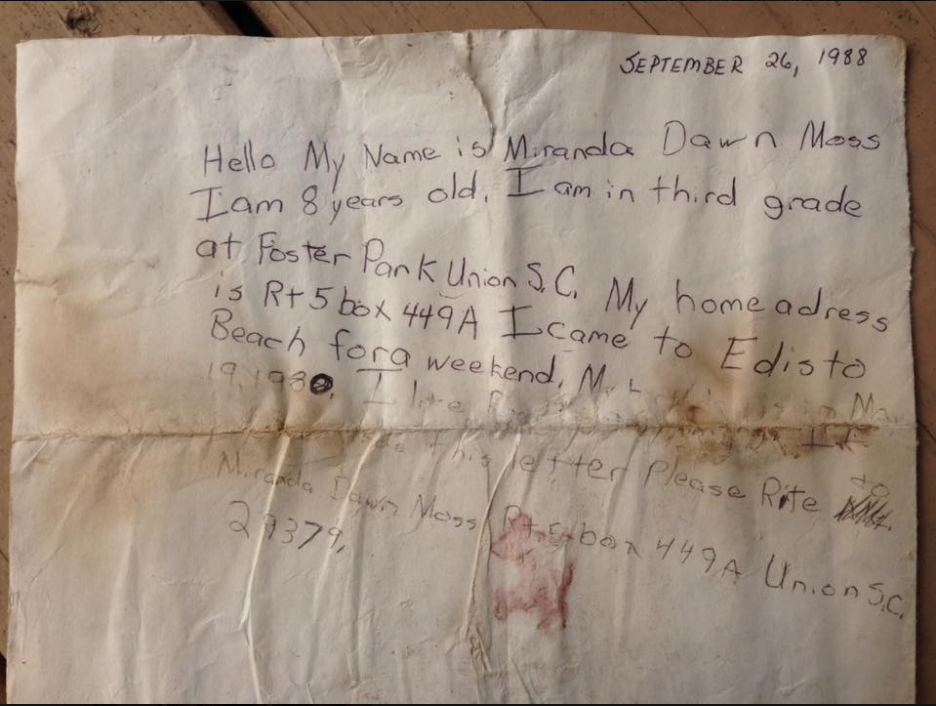 SEPTEMBER 26, 1988
Hello My Name is Miranda Dawn Moss
I am 8 years old. I am in third grade
at Foster Park Union S.C. My home adress
is Rt 5 box 449A I came to Edisto
Beach for a weekend. My
19, 1980. I like
this letter Please Rite to
Miranda Dawn Moss Rt 5 box 449A Union S.C.
29379.